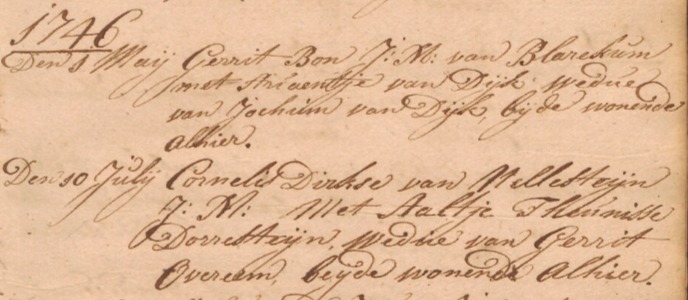 1746
Den 1 Maij Gerrit Bon J: M: van Blarekum
met Ariaentje van Dijk, wedue
van Jochim van Dijk, bijde wonende
alhier.
Den 10 Julij Cornelis Dirkse van Nellesteijn
J: M: Met Aaltje Theunisse
Dorresteijn, Wedue van Gerrit
Overeem, beijde wonende Alhier.